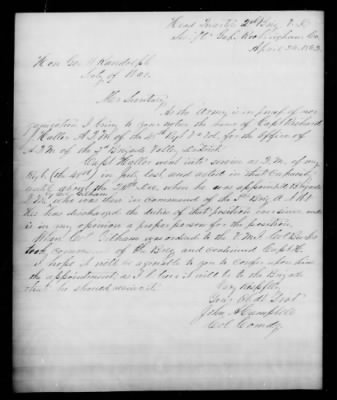 Head Quarters 2nd Brig V. D.
Swift Run Gap, Rockingham Co.
April 24, 1862
Hon Geo. W Randolph
Secty of War.
Mr Secretary
As the Army is in process of reor-
ganization I bring to your notice the name of Capt. Richard
Haller A.Q.M. of the 48th Regt Va Vol. for the Office of
Q.M. of the 2nd Brigade Valley District.
Capt Haller went into service as Q.M. of my
Regt. (the 48th) in July last and acted in that Capacity
until about the 24th Dec. when he was appointed Brigade
Q.M. by Col. Gilham who was then in command of the Brig
He has discharged the duties of that position ever since and
is in my opinion a proper person for the position.
When Col. Gilham was ordered to the V.M.I. Col Burks
took command of the Brig and continued Capt H.
I hope it will be agreeable to you to confer upon him
the appointment, as I believe it will be to the Brigade
that he should receive it.
Very Respectfully
Your Obdt Servt
John A Campbell
Col. Comdg